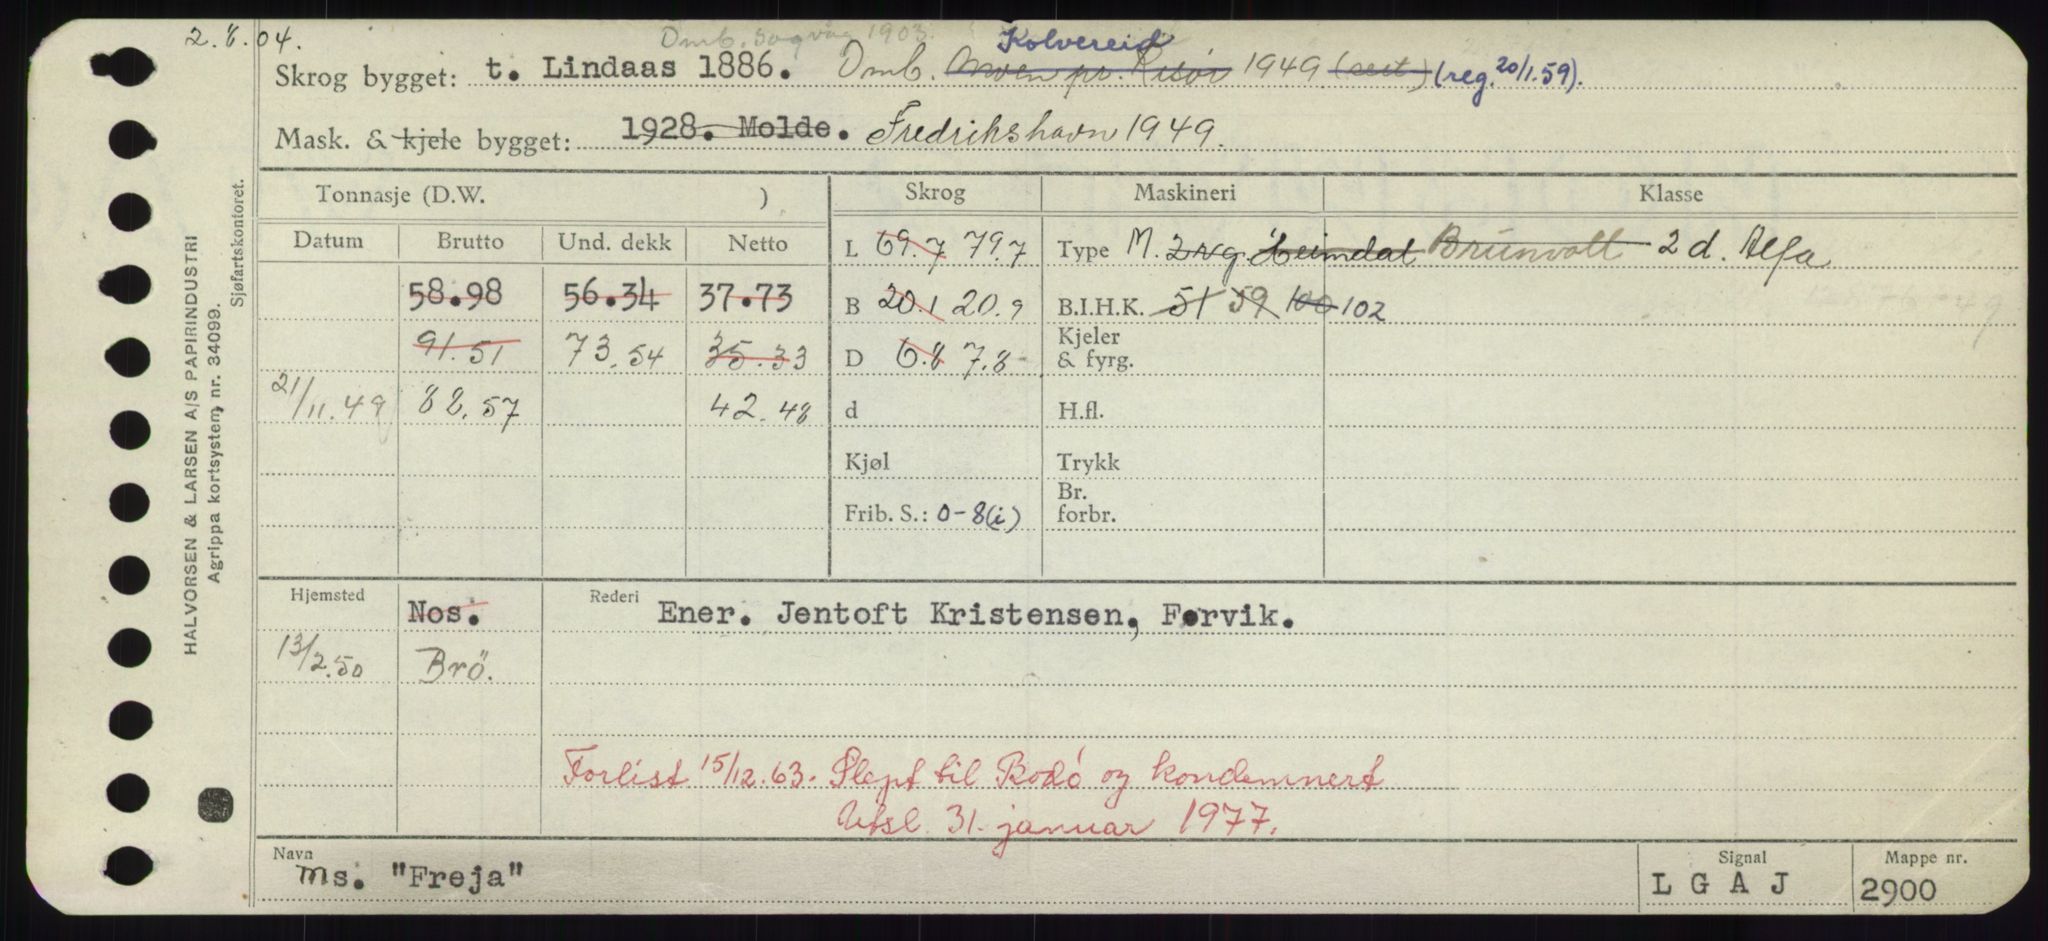 2.8.04. Omb. Sagvåg 1903. Kolvereid
Skrog bygget: t. Lindaas 1886. Omb. pr. Risør 1949 (reg. 20/1.59).
Mask. & kjele bygget: 1928. Molde. Fredrikshavn 1949.
Tonnasje (D.W. ) Skrog Maskineri Klasse
Datum Brutto Und. dekk Netto L 69.7 79.7 Type M. Heimdal Brunvoll 2 d. Alfa
58.98 56.34 37.73 B 20.1 20.9 B.I.H.K. 51 59 100 102
91.51 73.54 35.33 D 6.8 7.8 Kjeler & fyrg.
21/11.49 88.57 42.48 d H.fl.
Kjøl Trykk
Frib. S.: 0-8(i) Br. forbr.
Hjemsted Nos. Rederi Ener. Jentoft Kristensen, Forvik.
13/2.50 Brö.
Forlist 15/12.63. Slept til Bodö og kondemnert
Utsl. 31. januar 1977.
Navn Signal Mappe nr.
Ms. "Freja" L G A J 2900
HALVORSEN & LARSEN A/S PAPIRINDUSTRI
Agrippa kortsystem, nr. 34099.
Sjøfartskontoret.